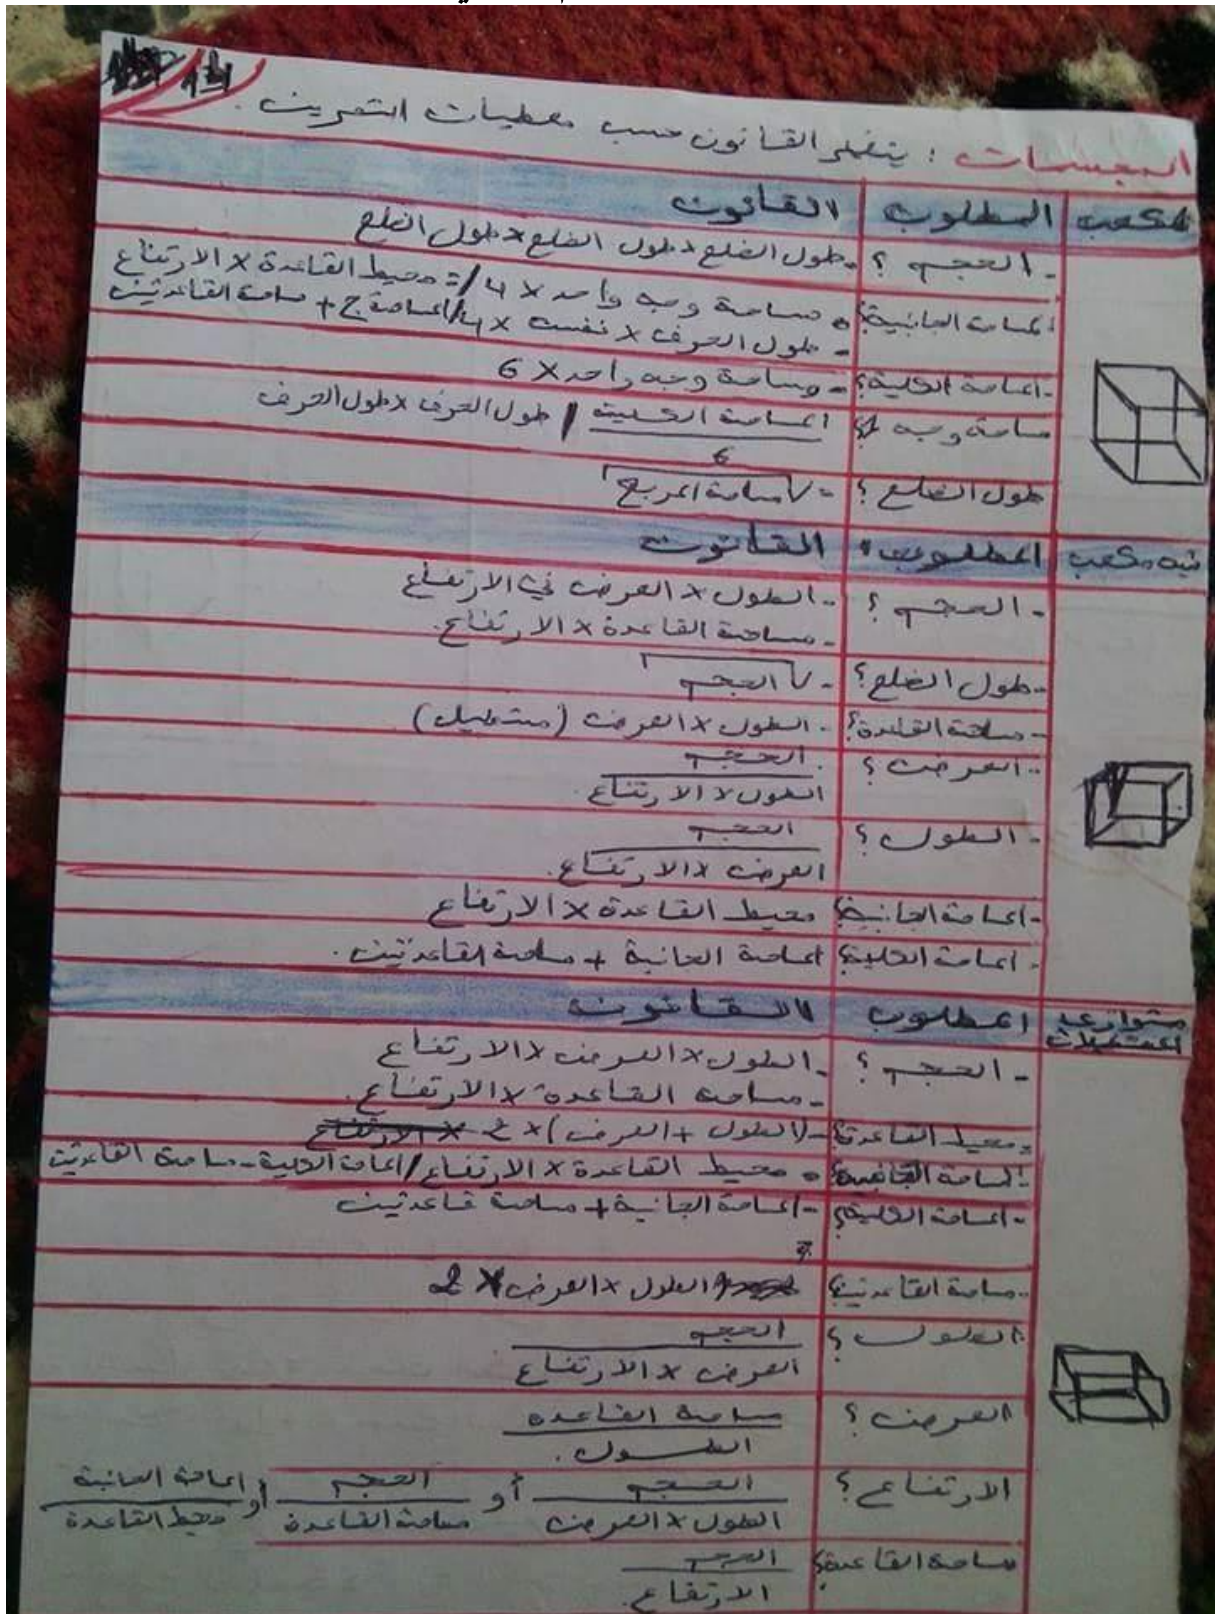 المجسمات : يتغير القانون حسب معطيات التمرين .
مكعب المطلوب القانون
- الحجم ؟ - طول الضلع × طول الضلع × طول الضلع
المساحة الجانبية؟ • مساحة وجه واحد × 4 /= محيط القاعدة × الارتفاع
- طول الحرف × نفسه × 4/ المساحة ج + مساحة القاعدتين
- المساحة الكلية؟ - مساحة وجه واحد × 6
مساحة وجه 1؟ المساحة الكلية / طول الحرف × طول الحرف
6
طول الضلع ؟ - √مساحة المربع
شبه مكعب المطلوب القانون
- الحجم ؟ - الطول × العرض في الارتفاع
- مساحة القاعدة × الارتفاع.
- طول الضلع؟ - √الحجم
- مساحة القاعدة؟ - الطول × العرض (مستطيل)
- العرض ؟ الحجم
الطول × الارتفاع.
- الطول ؟ الحجم
العرض × الارتفاع.
- المساحة الجانبية؟ محيط القاعدة × الارتفاع
- المساحة الكلية؟ المساحة الجانبية + مساحة القاعدتين .
متوازي المستطيلات المطلوب القانون
- الحجم ؟ - الطول × العرض × الارتفاع
- مساحة القاعدة × الارتفاع.
- محيط القاعدة؟ - (الطول + العرض) × 2 × الارتفاع
- المساحة الجانبية؟ • محيط القاعدة × الارتفاع / المساحة الكلية - مساحة القاعدتين
- المساحة الكلية؟ - المساحة الجانبية + مساحة قاعدتين
- مساحة القاعدتين؟ الطول × العرض × 2
الطول ؟ الحجم
العرض × الارتفاع
العرض ؟ مساحة القاعدة
الطول .
الارتفاع ؟ الحجم أو الحجم أو المساحة الجانبية
الطول × العرض مساحة القاعدة محيط القاعدة
مساحة القاعدة؟ الحجم
الارتفاع.